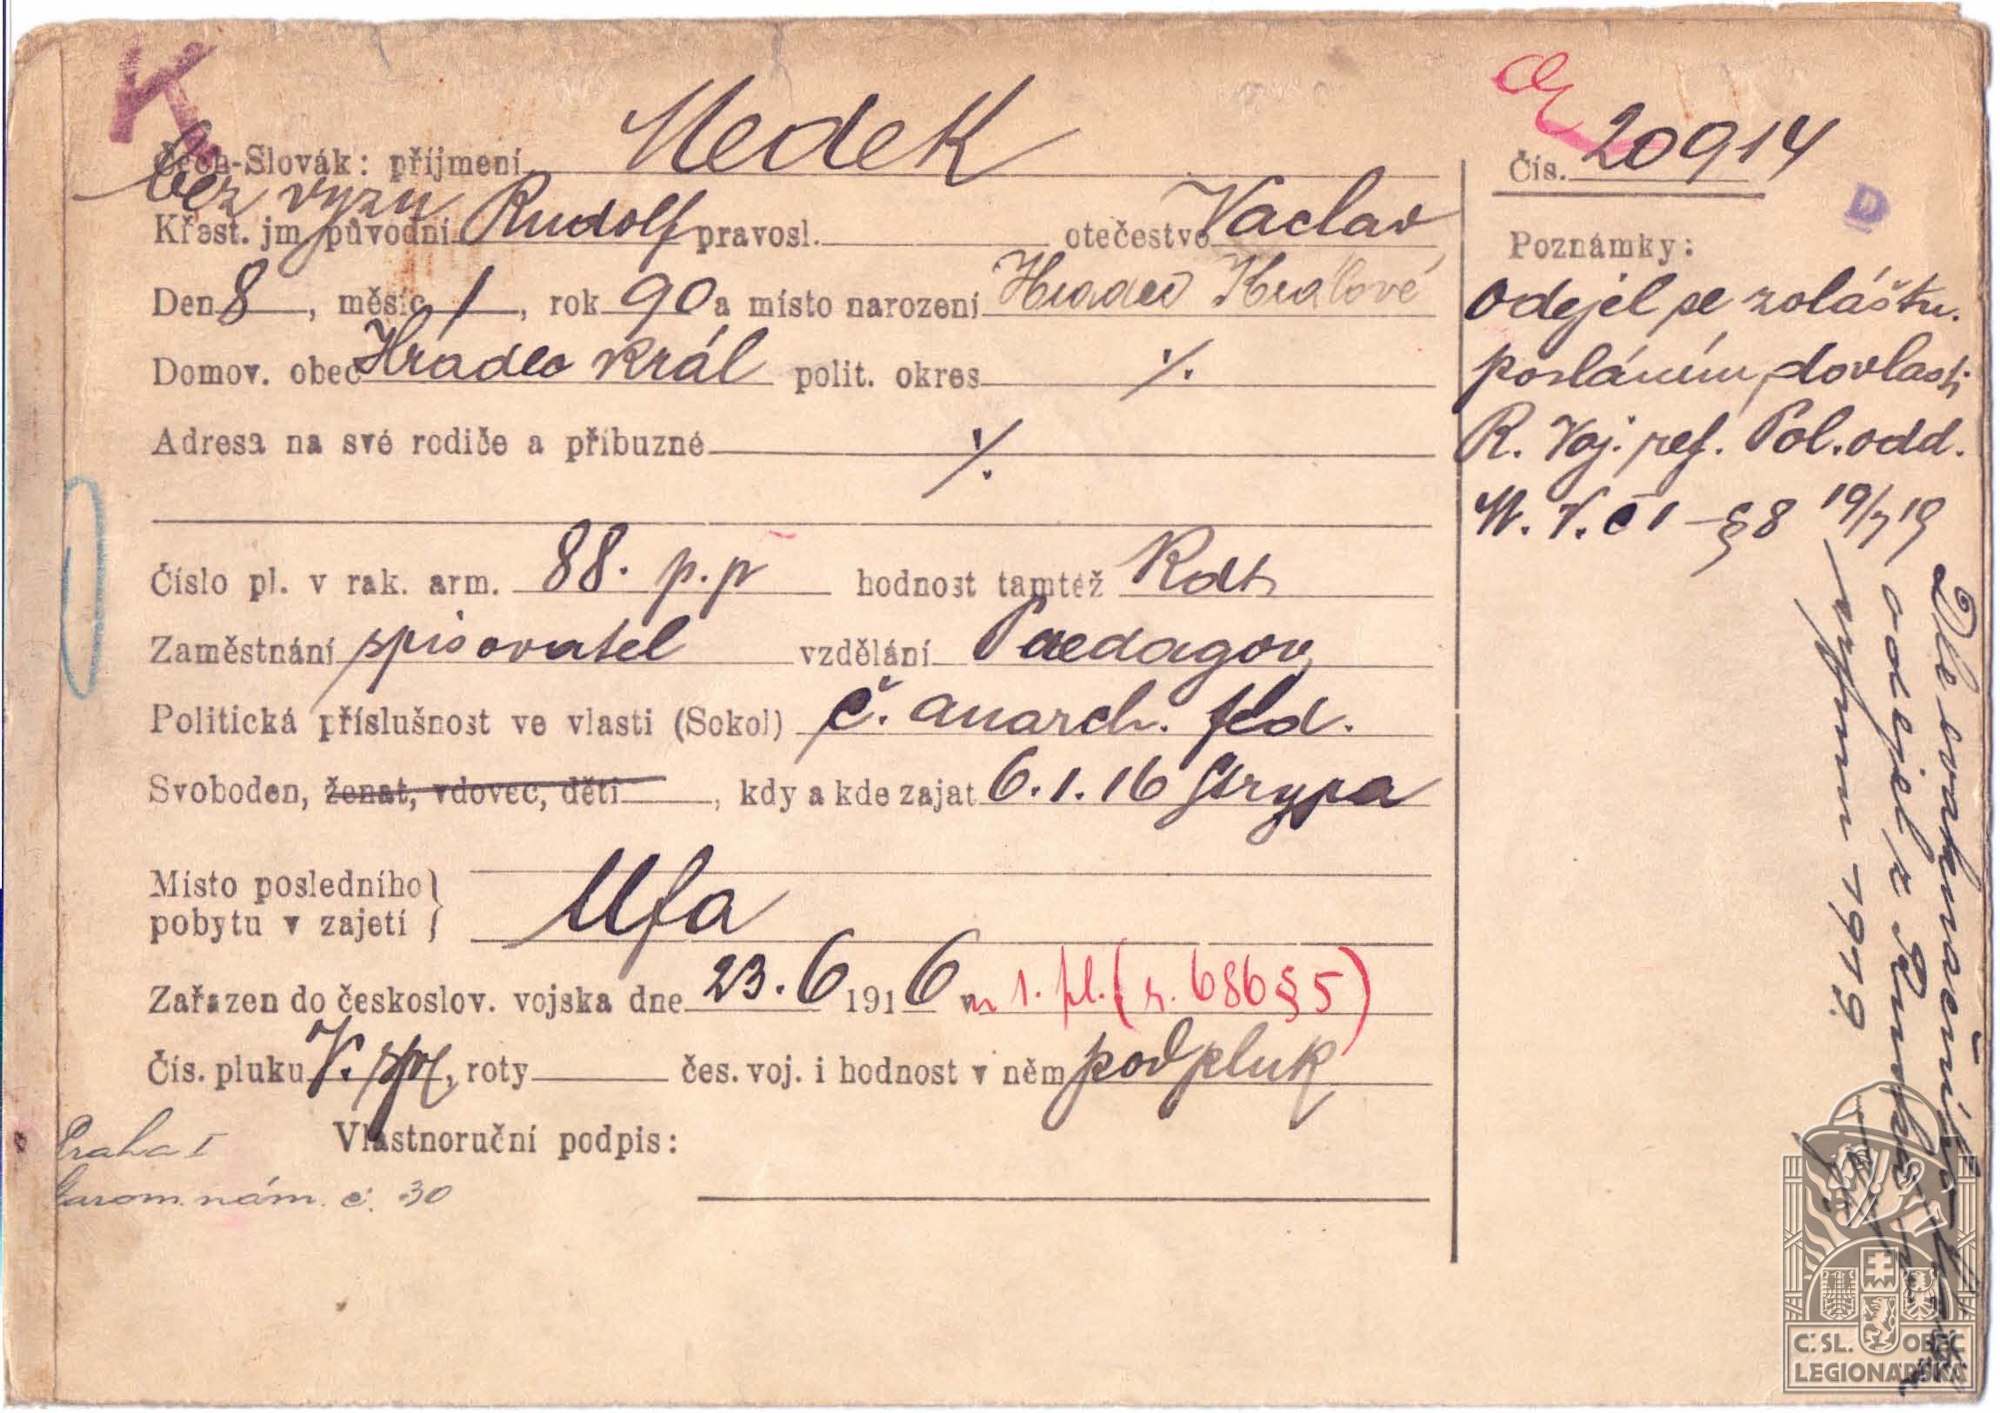 K
Čech-Slovák: příjmení Medek
bez vyzn
Křest. jm. původní Rudolf pravosl. otečestvo Vaclav
Den 8, měsíc 1, rok 90 a místo narození Hradec Králové
Domov. obec Hradec Král polit. okres ·/.
Adresa na své rodiče a příbuzné ·/.
Číslo pl. v rak. arm. 88. p.p hodnost tamtéž Kdt
Zaměstnání spisovatel vzdělání Paedagog
Politická příslušnost ve vlasti (Sokol) č. anarch. fed.
Svoboden, ženat, vdovec, děti, kdy a kde zajat 6.1.16 Strypa
Místo posledního
pobytu v zajetí } Ufa
Zařazen do českoslov. vojska dne 23. 6 1916 v 1. pl. (r. 686 § 5)
Čís. pluku V. , roty čes. voj. i hodnost v něm podpluk
Vlastnoruční podpis:
Praha I
Starom. nám. č. 30
Čís. 20914
D
Poznámky:
Odejel se zvláštn.
posláním do vlasti
R. Voj. ref. Pol. odd.
M. V. č 1 - § 8 19/7 19
Dle
odejel z Ruska
1919.
Č.SL. OBEC
LEGIONÁŘSKÁ